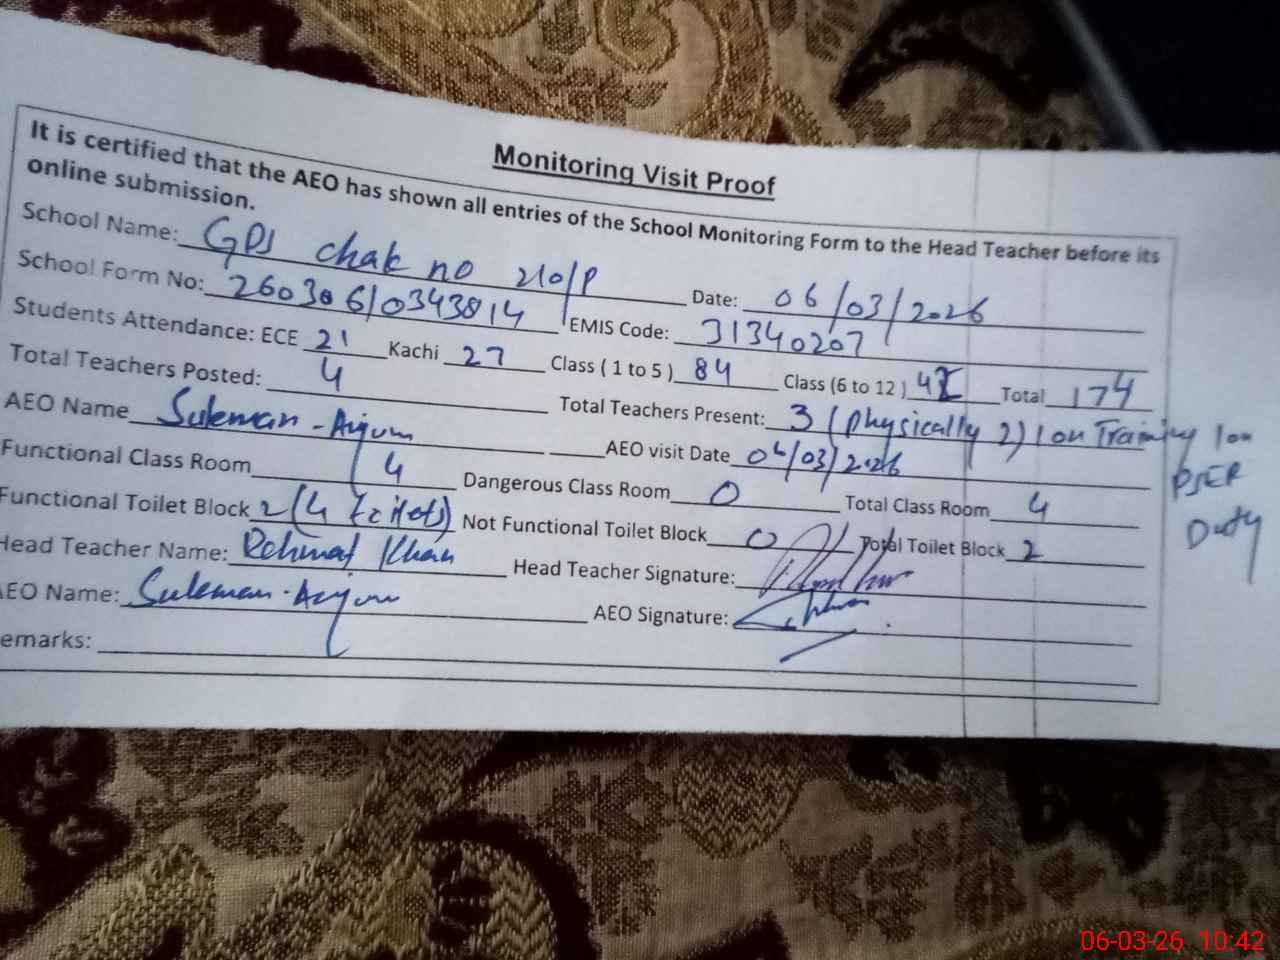 Monitoring Visit Proof
It is certified that the AEO has shown all entries of the School Monitoring Form to the Head Teacher before its
online submission.
School Name: GPS chak no 210/P Date: 06/03/2026
School Form No: 260306/0343814 EMIS Code: 31340207
Students Attendance: ECE 21 Kachi 27 Class ( 1 to 5 ) 84 Class (6 to 12 ) 42 Total 174
Total Teachers Posted: 4 Total Teachers Present: 3 (Physically 2) 1 on Training 1 on
PSER
Duty
AEO Name Suleman-Anjum AEO visit Date 06/03/2026
Functional Class Room 4 Dangerous Class Room 0 Total Class Room 4
Functional Toilet Block 2 (4 toilets) Not Functional Toilet Block 0 Total Toilet Block 2
Head Teacher Name: Rehmat Khan Head Teacher Signature:
AEO Name: Suleman-Anjum AEO Signature:
emarks:
06-03-26 10:42